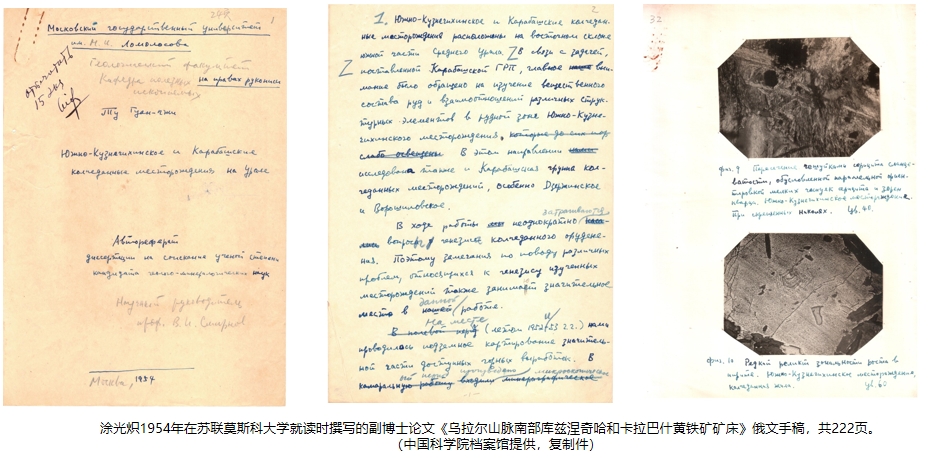 1
Московский государственный университет
им. М. В. Ломоносова
Геологический факультет
Кафедра полезных
на правах рукописи
ископаемых
15 экз
Ту Гуан-чжи
Южно-Кузнечихинское и Карабашские
колчеданные месторождения на Урале
Автореферат
диссертации на соискание ученой степени
кандидата геолого-минералогических наук
Научный руководитель
проф. В. И. Смирнов
Москва, 1954
2
1. Южно-Кузнечихинское и Карабашские колчедан-
ные месторождения расположены на восточном склоне
южной части Среднего Урала. В связи с задачей,
поставленной Карабашской ГРП, главное вни-
мание было обращено на изучение вещественного
состава руд и взаимоотношений различных струк-
турных элементов в рудной зоне Южно-Кузне-
чихинского месторождения, которые до сих пор
слабо освещены. В этом направлении
исследована также и Карабашская группа кол-
чеданных месторождений, особенно Дружинское
и Ворошиловское.
затрагиваются
В ходе работы неоднократно
вопросы генезиса колчеданного орудене-
ния. Поэтому замечания по поводу различных
проблем, относящихся к генезису изученных
месторождений также занимают значительное
место в нашей работе.
данной
На месте
(летом 1952-53 г.г.) нами
проводилось подземное картирование значитель-
ной части доступных горных выработок. В
камеральную работу входили микрографическое
32
фиг. 9
Южно-Кузнечихинское месторождение.
При скрещенных николях. Ув. 40.
фиг. 10 Редкий реликт зональности роста в
пирите. Южно-Кузнечихинское месторождение,
Ув. 60
涂光炽1954年在苏联莫斯科大学就读时撰写的副博士论文《乌拉尔山脉南部库兹涅奇哈和卡拉巴什黄铁矿矿床》俄文手稿，共222页。
（中国科学院档案馆提供，复制件）